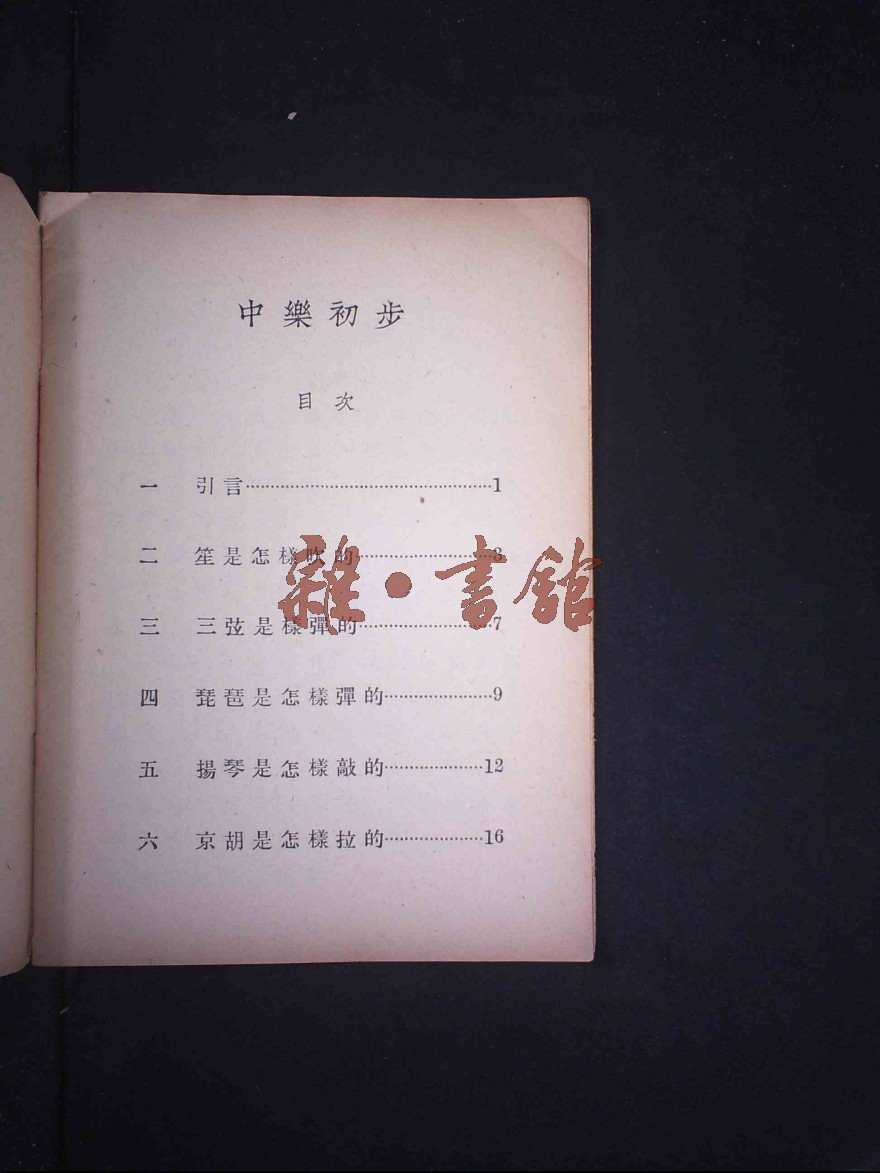 中樂初步
目次
一 引言……………………………………1
二 笙是怎樣吹的……………………3
三 三弦是樣彈的……………………7
四 琵琶是怎樣彈的…………………9
五 揚琴是怎樣敲的………………12
六 京胡是怎樣拉的………………16
雜·書館